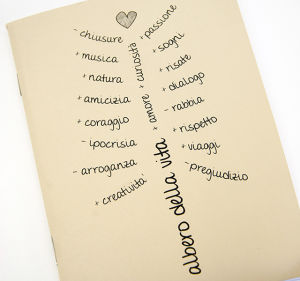 - chiusure
+ musica
+ natura
+ amicizia
+ coraggio
- ipocrisia
- arroganza
+ creatività
+ passione
+ sogni
+ risate
+ dialogo
- rabbia
+ rispetto
+ viaggi
- pregiudizio
albero della vita + amore + curiosità